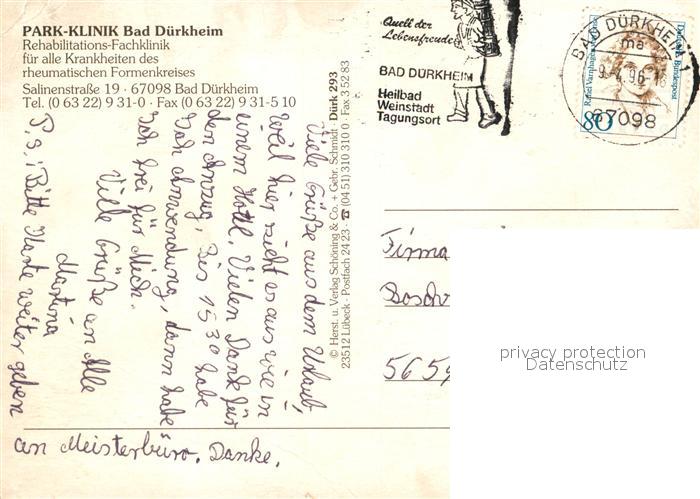 PARK-KLINIK Bad Dürkheim
Rehabilitations-Fachklinik
für alle Krankheiten des
rheumatischen Formenkreises
Salinenstraße 19 · 67098 Bad Dürkheim
Tel. (0 63 22) 9 31-0 · Fax (0 63 22) 9 31-5 10
Quell der
Lebensfreude
BAD DÜRKHEIM
Heilbad
Weinstadt
Tagungsort
BAD DÜRKHEIM 1
ma
9.-4.96-1
67098
Deutsche Bundespost
Rahel Varnhagen
80
© Herst. u. Verlag Schöning & Co. + Gebr. Schmidt · Dürk 293
23512 Lübeck · Postfach 24 23 · ☎ (04 51) 310 310 0 · Fax 3 52 83
Viele Grüße aus dem Urlaub,
weil hier sieht es aus wie in
einem Hotel. Vielen Dank für
den Anzug. Bis 1530 habe
Ich Anwendung, dann habe
Ich frei für Mich.
Viele Grüße an Alle
Martina
P.s.: Bitte Karte weiter geben
an Meisterbüro. Danke.
Firma
Bosch
565
privacy protection
Datenschutz